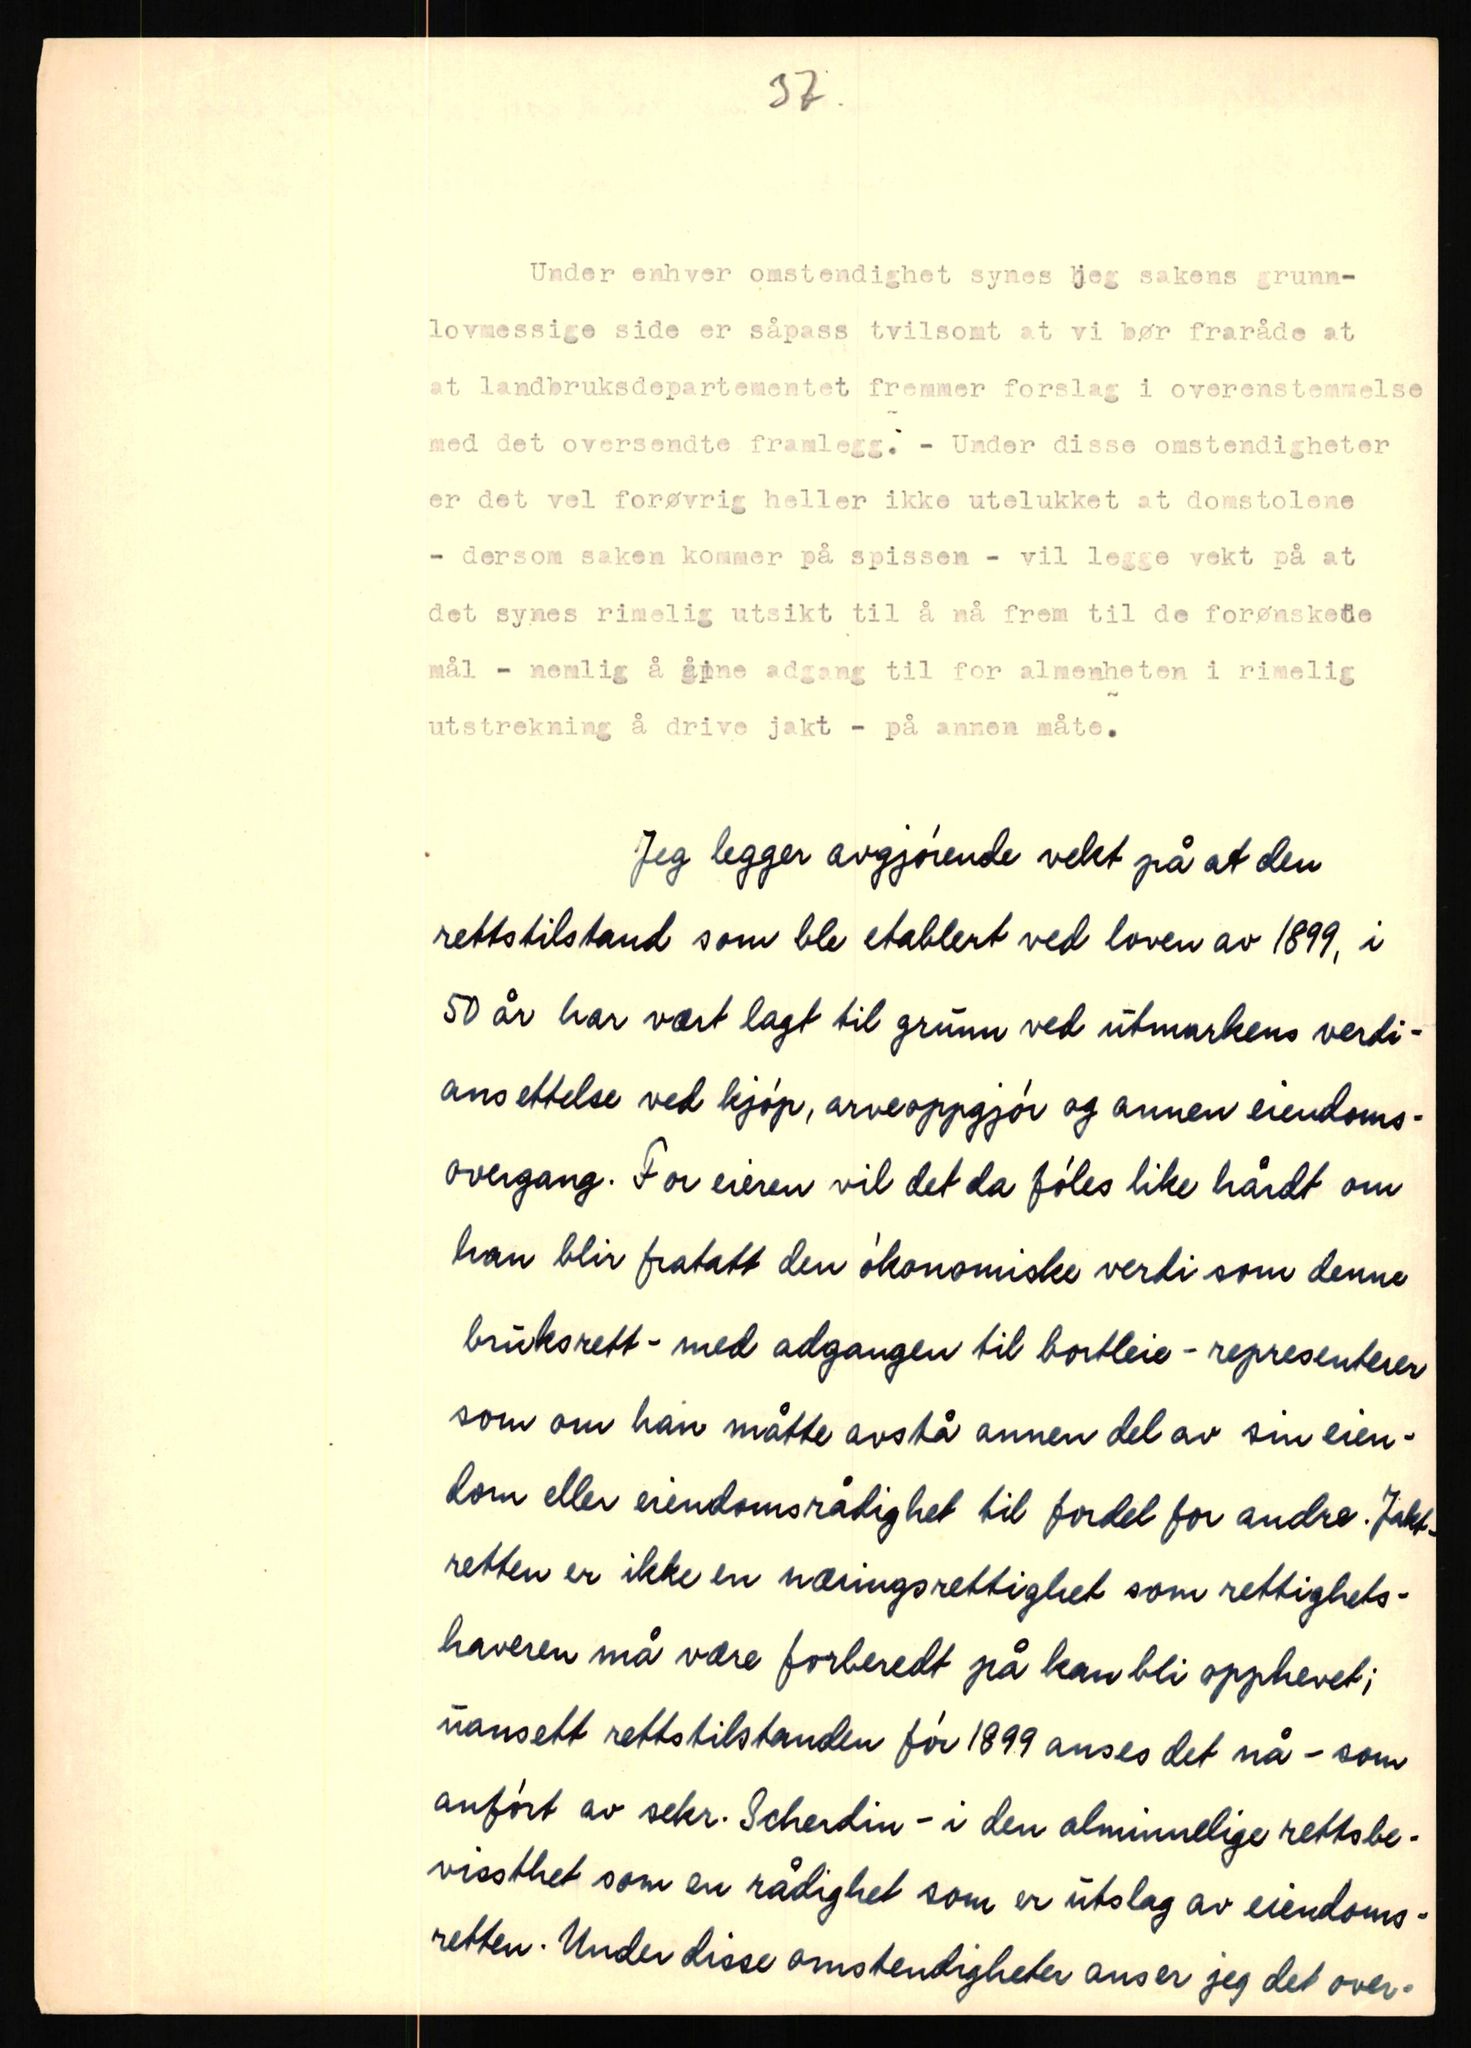 37.
Under enhver omstendighet synes jeg sakens grunn-
lovmessige side er såpass tvilsomt at vi bør fraråde at
at landbruksdepartementet fremmer forslag i overenstemmelse
med det oversendte framlegg. - Under disse omstendigheter
er det vel forøvrig heller ikke utelukket at domstolene
- dersom saken kommer på spissen - vil legge vekt på at
det synes rimelig utsikt til å nå frem til de forønskede
mål - nemlig å åpne adgang til for almenheten i rimelig
utstrekning å drive jakt - på annen måte.
Jeg legger avgjørende vekt på at den
rettstilstand som ble etablert ved loven av 1899, i
50 år har vært lagt til grunn ved utmarkens verdi-
ansettelse ved kjøp, arveoppgjør og annen eiendoms-
overgang. For eieren vil det da føles like hårdt om
han blir fratatt den økonomiske verdi som denne
bruksrett - med adgangen til bortleie - representerer
som om han måtte avstå annen del av sin eien-
dom eller eiendomsrådighet til fordel for andre. Jakt-
retten er ikke en næringsrettighet som rettighets-
haveren må være forberedt på kan bli opphevet;
uansett rettstilstanden før 1899 anses det nå - som
anført av sekr. Scherdin - i den alminnelige rettsbe-
vissthet som en rådighet som er utslag av eiendoms-
retten. Under disse omstendigheter anser jeg det over-